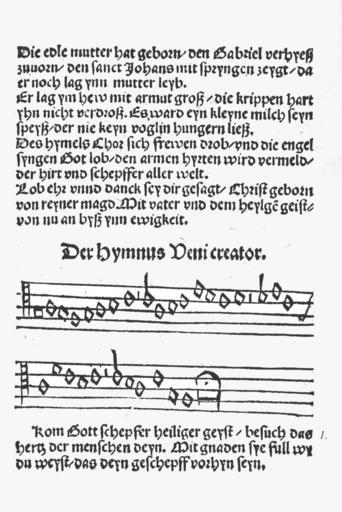 Die edle mutter hat geborn / den Gabriel verhyeß
zuuorn / den sanct Johans mit spryngen zeygt / da
er noch lag ynn mutter leyb.
Er lag ym hew mit armut groß / die krippen hart
yhn nicht verdroß. Es ward eyn kleyne milch seyn
speyß / der nie keyn voglin hungern ließ.
Des hymels Chor sich frewen drob / vnd die engel
syngen Got lob / den armen hyrten wird vermeld /
der hirt vnd schepffer aller welt.
Lob ehr vnnd danck sey dir gesagt / Christ geborn
von reyner magd. Mit vater vnd dem heylgē geist /
von nu an byß ynn ewigkeit.
Der Hymnus Veni creator.
Kom Gott schepfer heiliger geyst / besuch das 1.
hertz der menschen deyn. Mit gnaden sye full wy
du weyst / das deyn geschepff vorhyn seyn.